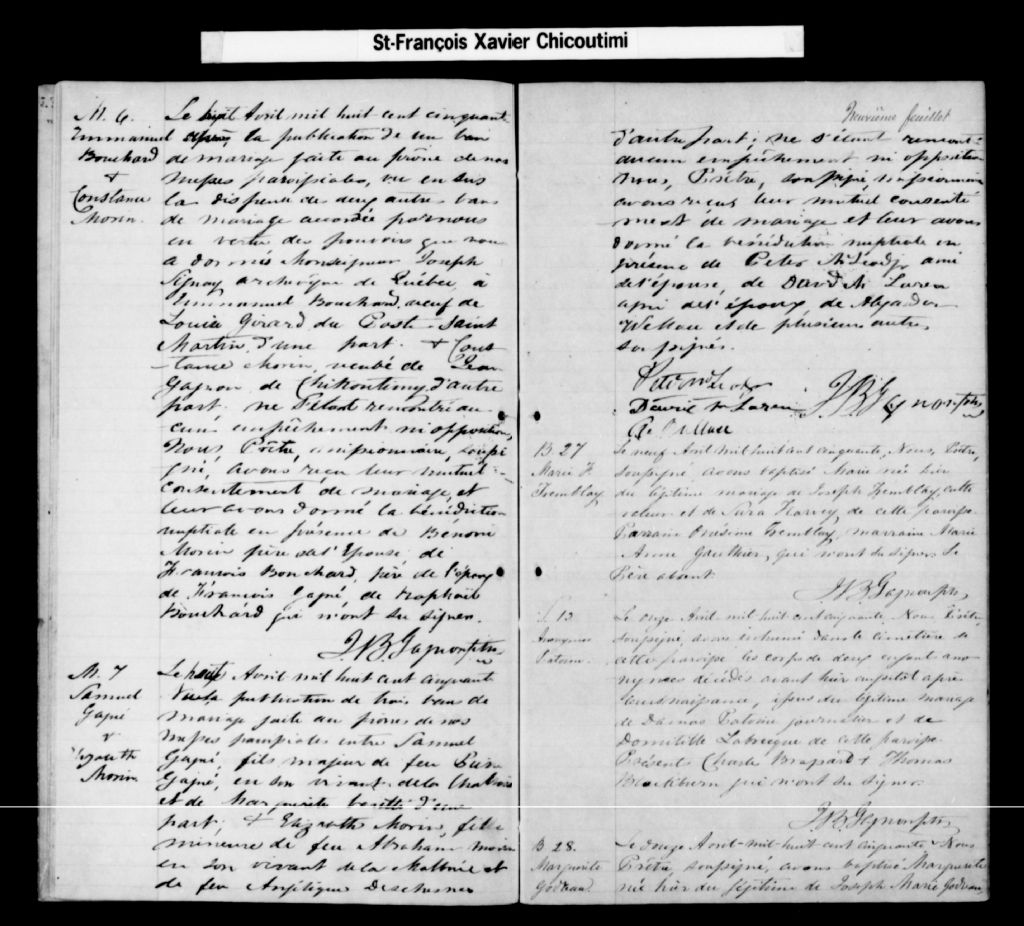 St-François Xavier Chicoutimi
M. 6.
Emmanuel
Bouchard
+
Constance
Morin.
Le huit Avril mil huit cent cinquante
après la publication de un ban
de mariage faite au prône de nos
messes paroissiales, vu en sus
la dispense de deux autres bans
de mariage accordée par nous
en vertu des pouvoirs que nous
a donnés Monseigneur Joseph
Signay archevêque de Québec, à
Emmanuel Bouchard, veuf de
Louise Girard du Poste Saint
Martin, d'une part. + Cons
-tance Morin, veuve de Jean
Gagnon de Chikoutimy, d'autre
part. ne s'étant rencontré au
cun empêchement ni opposition,
Nous, Prêtre, missionnaire, soussi
gné, avons reçu leur mutuel
consentement de mariage, et
leur avons donné la bénédiction
nuptiale en présence de Bénoni
Morin père de l'Epouse de
François Bouchard, père de l'époux
de François Gagné de Raphaël
Bouchard qui n'ont su signer.
J. B. Gagnon ptre
M. 7
Samuel
Gagné
+
Elizabeth
Morin
Le huit Avril mil huit cent cinquante
Vu la publication de trois bans de
mariage faite au prône de nos
messes paroissiales entre Samuel
Gagné, fils majeur de feu
Gagné, en son vivant de la Malbaie
et de Marguerite d'une
part, + Elizabeth Morin, fille
mineure de feu Abraham Morin
en son vivant de la Malbaie et
de feu Angélique Deschenes
Neuvième feuillet
d'autre part; ne s'étant rencontré
aucun empêchement ni opposition
nous, Prêtre, soussigné, missionnaire
avons reçu leur mutuel consente
ment de mariage et leur avons
donné la bénédiction nuptiale en
présence de Peter McLeod jr ami
de l'épouse, de David McLaren
ami de l'époux de Alexander
Wallace et de plusieurs autres
soussignés.
Peter McLeod jr
David McLaren J. B. Gagnon ptre
B. 27
Marie
Tremblay
Le neuf Avril mil huit cent cinquante, Nous, Prêtre,
soussigné avons baptisé Marie née hier
du légitime mariage de Joseph Tremblay, culti
vateur et de Sara Harvey de cette paroisse
Parrain Onésime Tremblay, marraine Marie
Anne Gauthier, qui n'ont su signer. Le
Père absent
J. B. Gagnon ptre
S. 13
Anonymes
Le onze Avril mil huit cent cinquante Nous Prêtre
soussigné, avons inhumé dans le cimetière de
cette paroisse les corps de deux enfant ano
nymes décédés avant hier aussitôt après
leur naissance, issus du légitime mariage
de Damas journalier et de
Domitille Labrecque de cette paroisse
Présents Charle Brassard + Thomas
Blackburn qui n'ont su signer.
J. B. Gagnon ptre
B. 28.
Marguerite
Godreau
Le douze Avril mil huit cent cinquante Nous
Prêtre soussigné, avons baptisé Marguerite
née hier du légitime de Joseph Marie Godreau